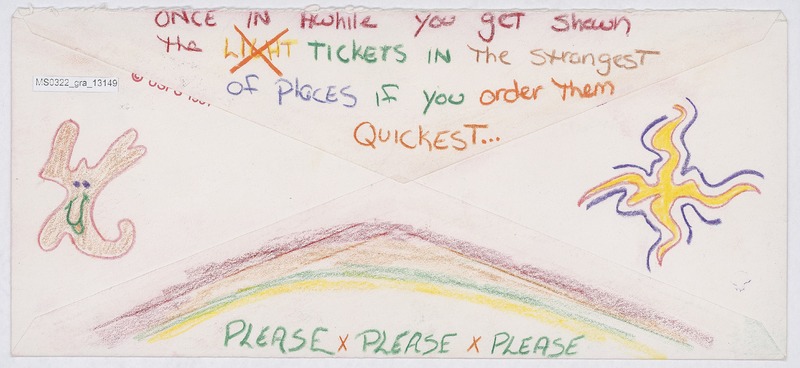 ONCE IN Awhile you get shown
the LIGHT TICKETS IN The strangest
of PlaCES if you order them
QUICKEST...
MS0322_gra_13149
©USPS 1997
PLEASE x PLEASE x PLEASE